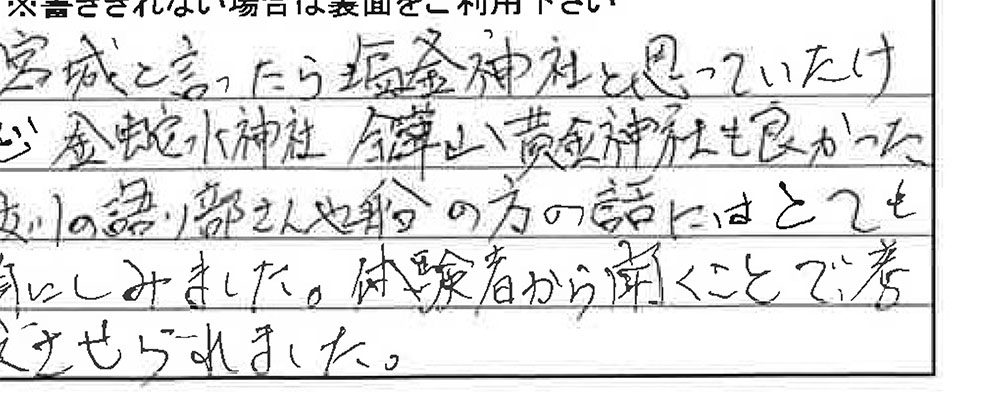 ※書ききれない場合は裏面をご利用下さい
宮城と言ったら塩釜神社と思っていたけ
ど 金蛇水神社 金華山黄金神社も良かった
の語り部さんや船の方の話にはとても
にしみました。体験者から聞くことで考
えさせられました。